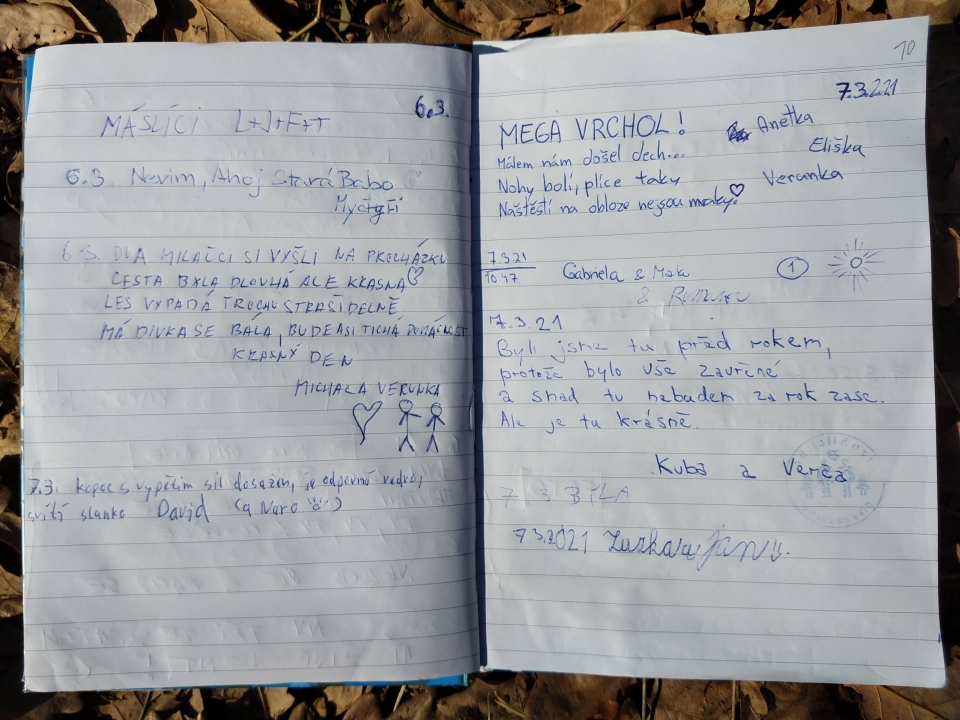 6.3.
MÁSLÍCI L+J+F+T
6.3. Nevim, Ahoj Stará Babo
6.3. DVA MILÁČCI SI VYŠLI NA PROCHÁZKU
CESTA BYLA DLOUHÁ ALE KRÁSNÁ
LES VYPADÁ TROCHU STRAŠIDELNĚ
MÁ DIVKA SE BÁLA, BUDE ASI TICHÁ DOMÁCNOST
KRÁSNÝ DEN
MICHAL A VERUNKA
7.3. kopec s vypětím sil dosažen, je odporné vedro,
svítí slunko David (a Naro)
10
7.3.2.21
MEGA VRCHOL!
Málem nám došel dech...
Nohy bolí, plíce taky
Naštěstí na obloze nejsou mraky!
Anetka
Eliška
Verunka
7.3.21
10.47.
Gabriela &
&
1
7.3.21
Byli jsme tu před rokem,
protože bylo vše zavřené
a snad tu nebudem za rok zase.
Ale je tu krásně.
Kuba a Verča
7. 3 BÍLA
7.3.2021 Zuzka a Jan